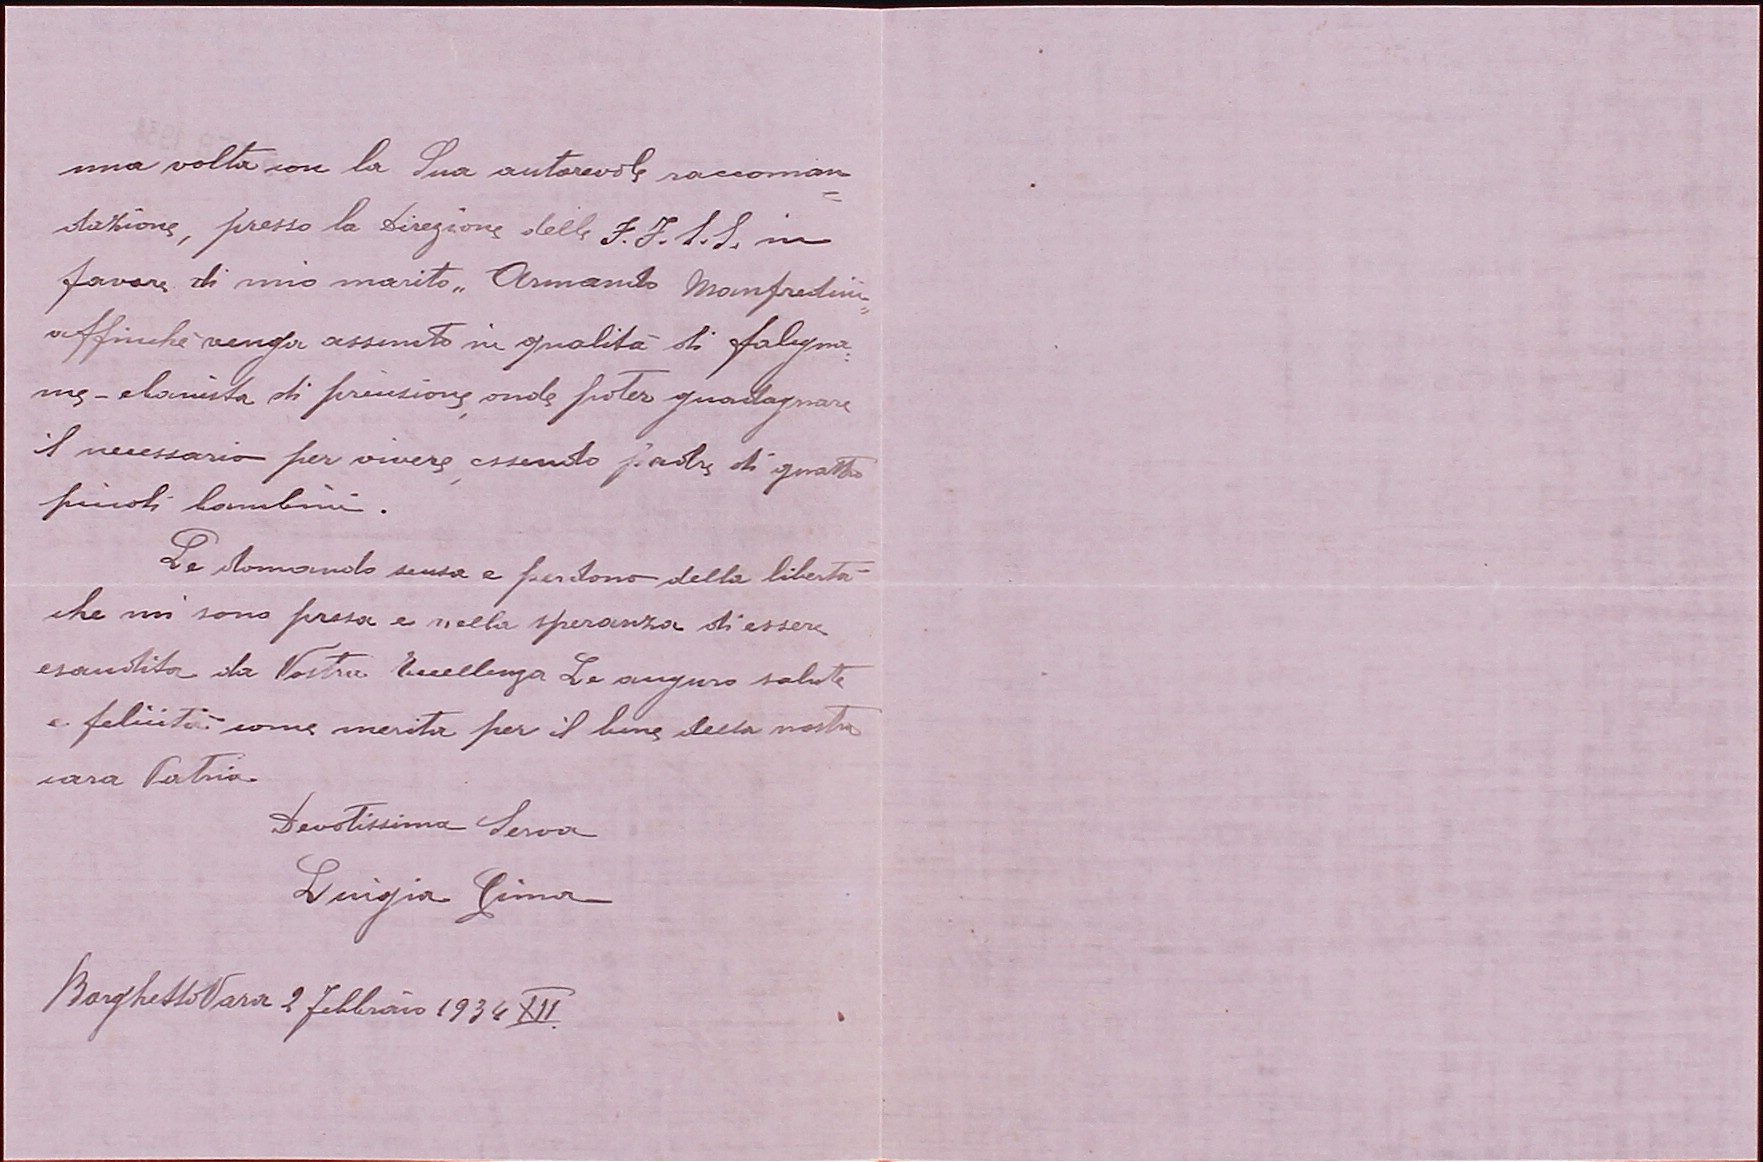 una volta con la Sua autorevole raccoman=
dazione, presso la Direzione delle F.F.S.S. in
favore di mio marito „ Armando Manfredini„
affinché venga assunto in qualità di falegna=
me - ebanista di precisione, onde poter guadagnare
il necessario per vivere, essendo padre di quattro
piccoli bambini.
Le domando scusa e perdono della libertà
che mi sono presa e nella speranza di essere
esaudita da Vostra Eccellenza Le auguro salute
e felicità come merita per il bene della nostra
cara Patria.
Devotissima Serva
Luigia Cima
Borghetto Vara 2 Febbraio 1934 XII.